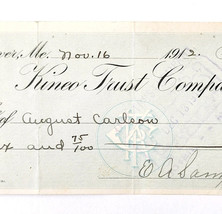 ver, Me. Nov. 16 1912
Kineo Trust Compa
of August Carlson
x and 75/100
E A Sam